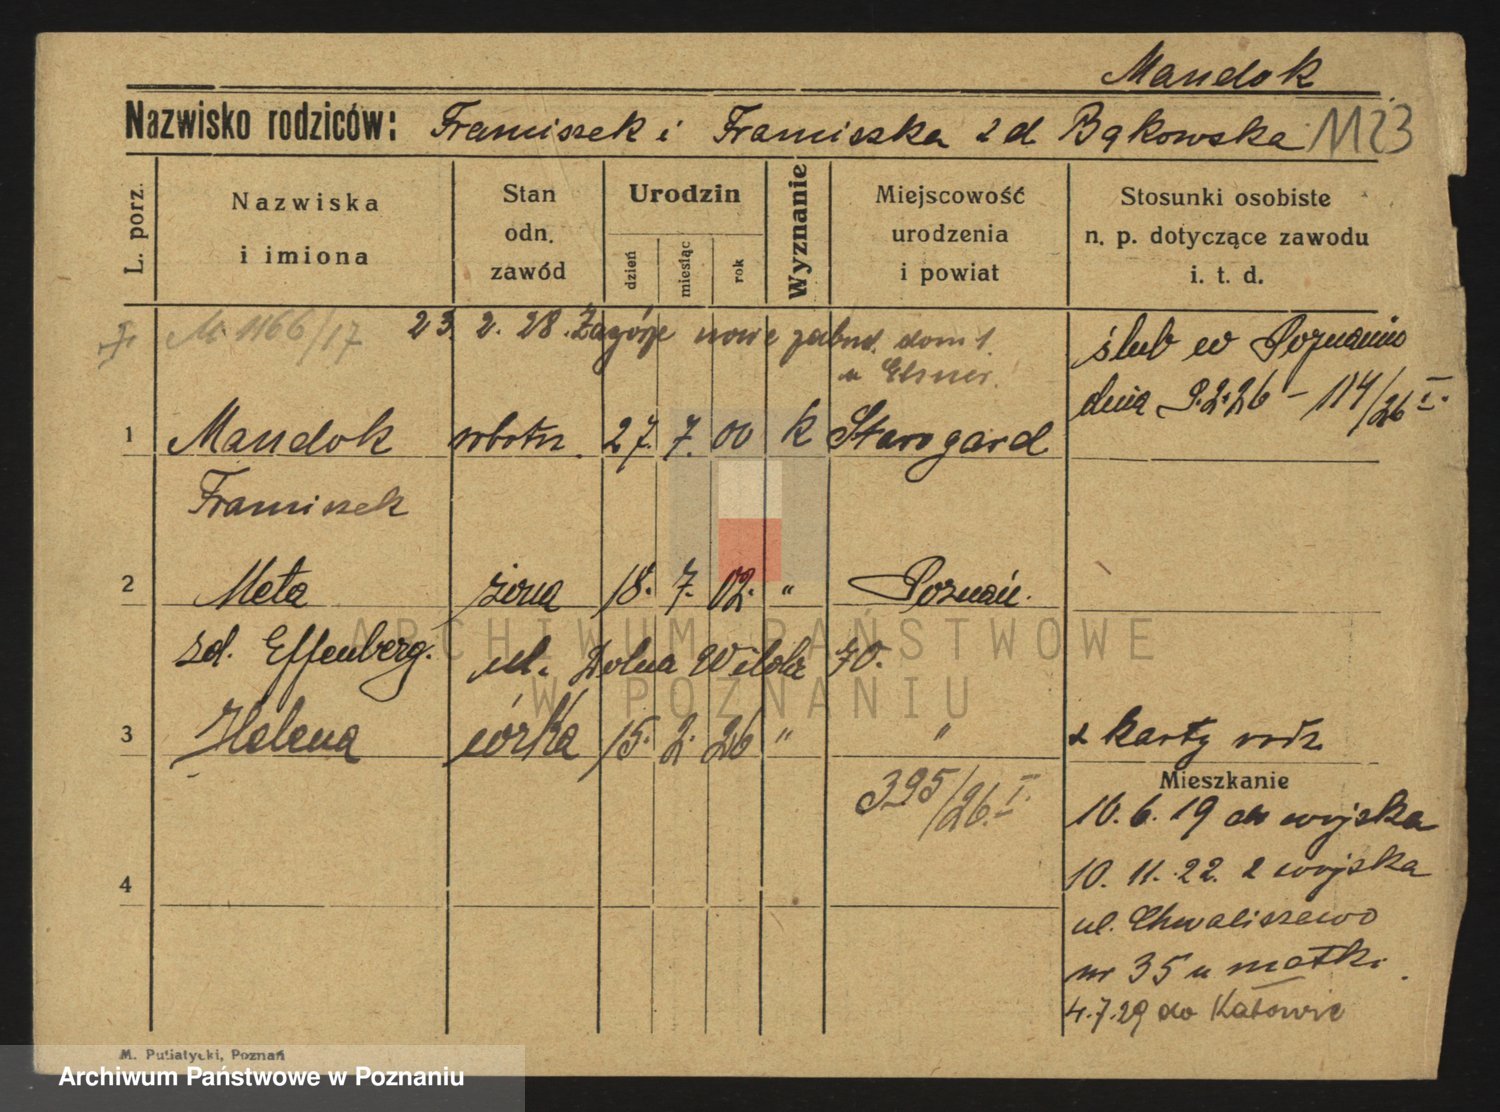 Mandok
Nazwisko rodziców: Franciszek i Franciszka z d Bąkowska 1123
L. porz.
Nazwiska
i imiona
Stan
odn.
zawód
Urodzin
dzień
miesiąc
rok
Wyznanie
Miejscowość
urodzenia
i powiat
Stosunki osobiste
n. p. dotyczące zawodu
i. t. d.
M 1166/17 23. 2. 28. Zagórze nowe zabud. dom 1.
u Elsner.
ślub w Poznaniu
dnia 9.2.26 - 114/26 I.
1 Mandok robotn. 27. 7. 00 k Starogard
Franciszek
2 Meta żona 18. 7. 02. " Poznań.
zd. Effenberg. ul. Dolna Wilda 70.
3 Helena córka 15. 2. 26 " " z karty rodz.
395/26. I.
Mieszkanie
10. 6. 19 do wojska
4
10. 11. 22. z wojska
ul. Chwaliszewo
nr 35 u matki.
4.7.29 do Katowic
M. Putiatycki, Poznań
ARCHIWUM PAŃSTWOWE
W POZNANIU
Archiwum Państwowe w Poznaniu